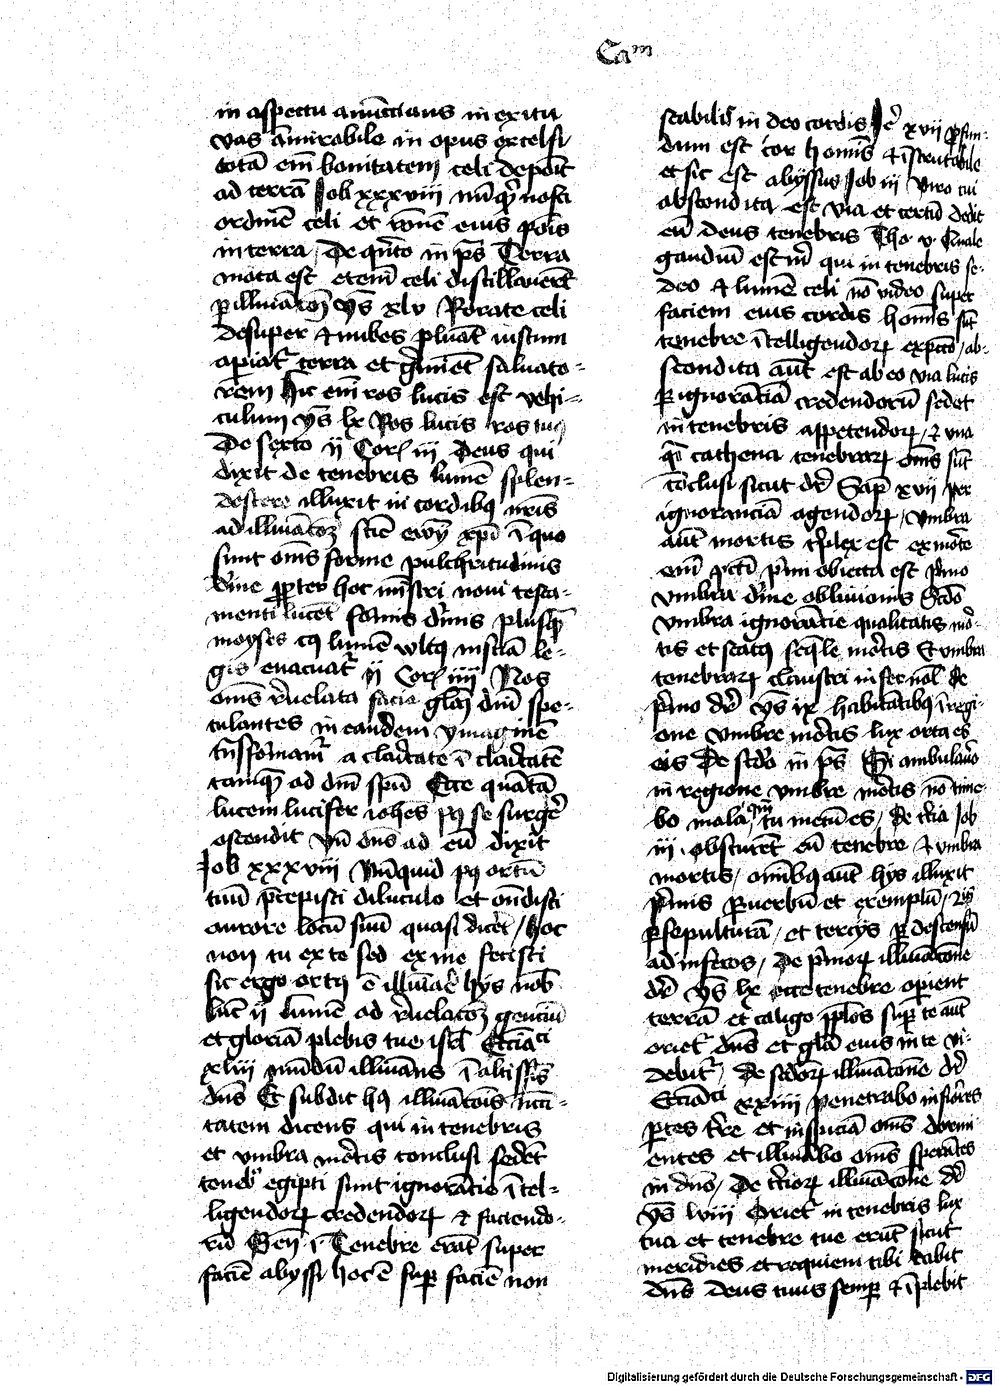 Cam
in aspectu anuncians in exitu
vas amirabile in opus excelsi
totā enī bonitatem celi deponit
ad terrā Job xxxviii nūquid nosti
ordinē celi et rōnē eius ponis
in terra / De quīto in ps Terra
mota est etenī celi distillauerūt
p illuīacōꝫ ys xlv Rorate celi
desuper ⁊ nubes pluāt iustum
apiat terra et gminet saluato-
rem hic enī ros lucis est vehi-
culum ys lx Ros lucis ros tuꝰ
De sexto ij Cor iii Deus qui
dixit de tenebris lumē splen-
descere illuxit in cordibꝰ nris
ad illuīacōꝫ sciē ewī xpi ī quo
sunt oms forme pulchritudinis
dīne ppter hoc mīstri noui testa-
menti lucēt fōmis diuīs plusquā
moyses cꝰ lumē vltꝰ in sciā le-
gis euacuat ij Cor iiii Nos
oms reuelata facie gliā dni spe-
culantes in eandem ymaginē
tnsformam a claritate ī claritatē
tamquā ad dni spū Ecce quātā
lucem lucifer iohes pꝰ se surgē
ostendit vn dns ad eū dixit
Job xxxviii Nūquid pꝰ ortū
tuū pcepisti diluculo et ondisti
aurore locū suū quasi dicet / hoc
non tu ex te sed ex me fecisti
sic ergo ortꝰ ē illuīaē hys nob
luc ij lumē ad reuelacōꝫ genciū
et gloriā plebis tue isrl Eccīaci
xliii mūdū illuīans ī altissis
dns Et subdit hꝰ illuīacōis
tatem dicens qui in tenebris
et vmbra mortis conclusi sedēt
teneb egipti sunt ignorācie ītel-
ligendoꝝ credendoꝝ ⁊ faciendo-
rū Gen i Tenebre erāt super
faciē abyssi hoc ē sup faciē non
scabilis in deo cordis Je xvii pfun-
dum est cor homīs ⁊ īscrutabile
et sic est abyssus Job iii viro cui
abscondita est via et circū dedit
eū deus tenebris Tho v Quale
gaudiū est m qui in tenebris se-
deo ⁊ lumē celi nō video super
faciem eius cordis homīs sūt
tenebre ītelligendoꝝ / ab-
scondita aut est ab eo via lucis
p ignorāciā credendorū sedet
in tenebris appetendoꝝ / ⁊ vna
cathena tenebraꝝ oms sūt
cōclusi sicut dr Sap xvii per
ignoranciā agendoꝝ / vmbra
aut mortis tplex est ex mōte
pctī pm obiecta est pmo
vmbra dīne obliuionis Scdo
vmbra ignorācie qualitatis mo-
tis et statꝰ mōtis Et vmbra
tenebraꝝ claustri infernal De
pmo dr ys ix habitātibꝰ ī regi-
one vmbre mortis lux orta est
eis De scdo in ps Si ambulauo
in regione vmbre mortis nō time-
bo mala qm tu mecū es / De tcia Job
iii obscurēt eū tenebre ⁊ vmbra
mortis / omībꝰ aut hys illuxit
pmis p verbū et exemplū /
p sepulturā / et tercys p descensū
ad inferos / De pmoꝝ illuīacōne
dr ys lx ecce tenebre opient
terrā et caligo pplos sup te aut
oriet dns et glā eius in te vi-
debit / De scdoꝝ illuīacōne dr
Eccīaci xxiiii penetrabo inferiores
ptes tre et inspiciā oms dormi-
entes et illuīabo oms sperātes
in dno / De tcioꝝ illuīacōne dr
ys lviii Oriet in tenebris lux
tua et tenebre tue erūt sicut
meridies et requiem tibi dabit
dns deus tuus semp ⁊ īplebit
Digitalisierung gefördert durch die Deutsche Forschungsgemeinschaft - DFG